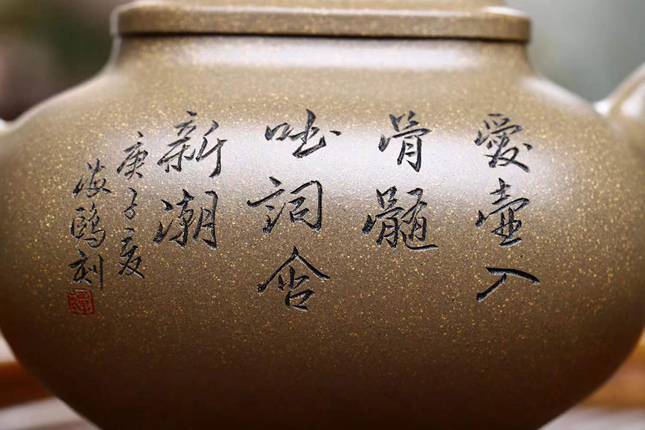 愛壺入
骨髓
吐詞含
新潮
庚子夏
海鷗刻